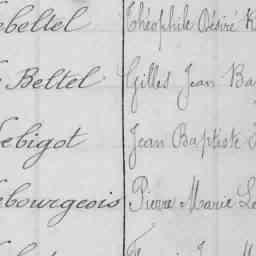 ebeltel Théophile Désiré
Beltel Gilles Jean Ba
ebigot Jean Baptiste
ebourgeois Pierre Marie Le